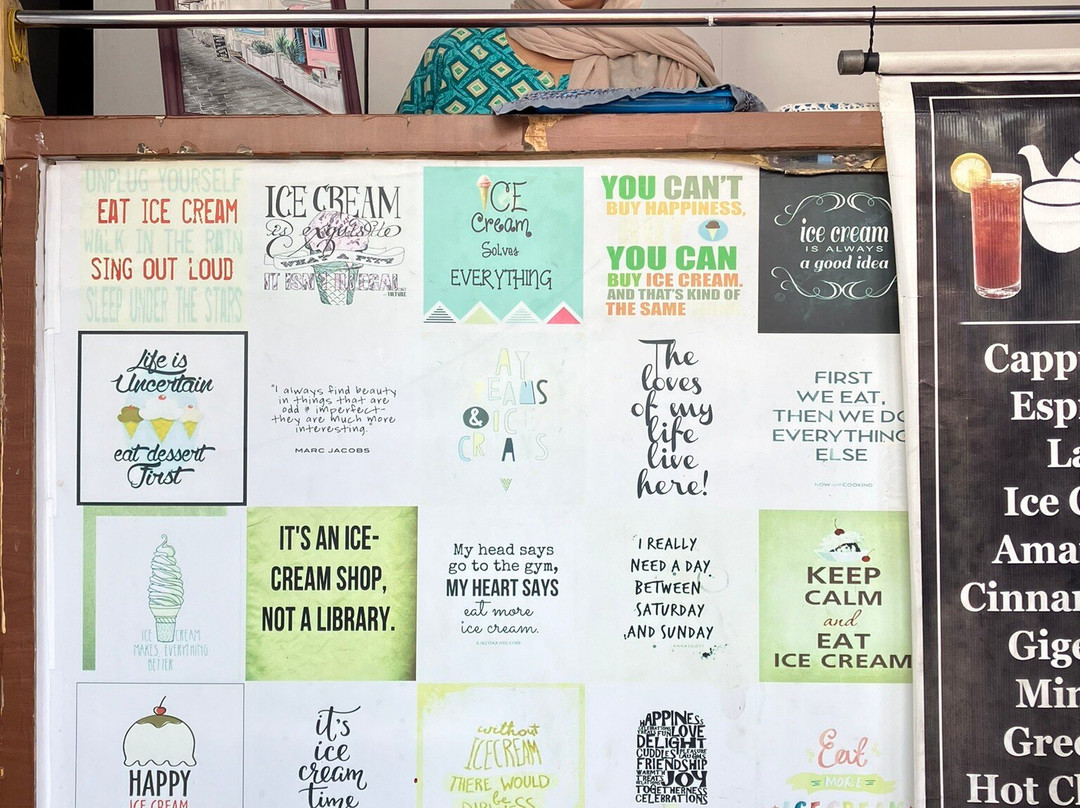 UNPLUG YOURSELF
EAT ICE CREAM
WALK IN THE RAIN
SING OUT LOUD
SLEEP UNDER THE STARS
ICE CREAM
is exquisite
WHAT A PITY
IT ISN'T ILLEGAL.
VOLTAIRE
ICE
Cream
Solves
EVERYTHING
YOU CAN'T
BUY HAPPINESS,
YOU CAN
BUY ICE CREAM.
AND THAT'S KIND OF
THE SAME
ice cream
IS ALWAYS
a good idea
Life is
Uncertain
eat dessert
First
"I always find beauty
in things that are
odd & imperfect-
they are much more
interesting.
MARC JACOBS
AY
EAMS
& ICE
CR AMS
The
loves
of my
life
live
here!
FIRST
WE EAT,
THEN WE DO
EVERYTHING
ELSE
COOKING
ICE CREAM
MAKES EVERYTHING
BETTER
IT'S AN ICE-
CREAM SHOP,
NOT A LIBRARY.
My head says
go to the gym,
MY HEART SAYS
eat more
ice cream.
I REALLY
NEED A DAY
BETWEEN
SATURDAY
AND SUNDAY
KEEP
CALM
and
EAT
ICE CREAM
HAPPY
ICE CREAM
it's
ice
cream
time
without
ICECREAM
THERE WOULD
be
HAPPINESS
LOVE
DELIGHT
CUDDLES
FRIENDSHIP
JOY
TOGETHERNESS
CELEBRATIONS
Eat
MORE
ICE CREAM
Capp
Esp
La
Ice C
Ama
Cinna
Gige
Min
Gree
Hot C